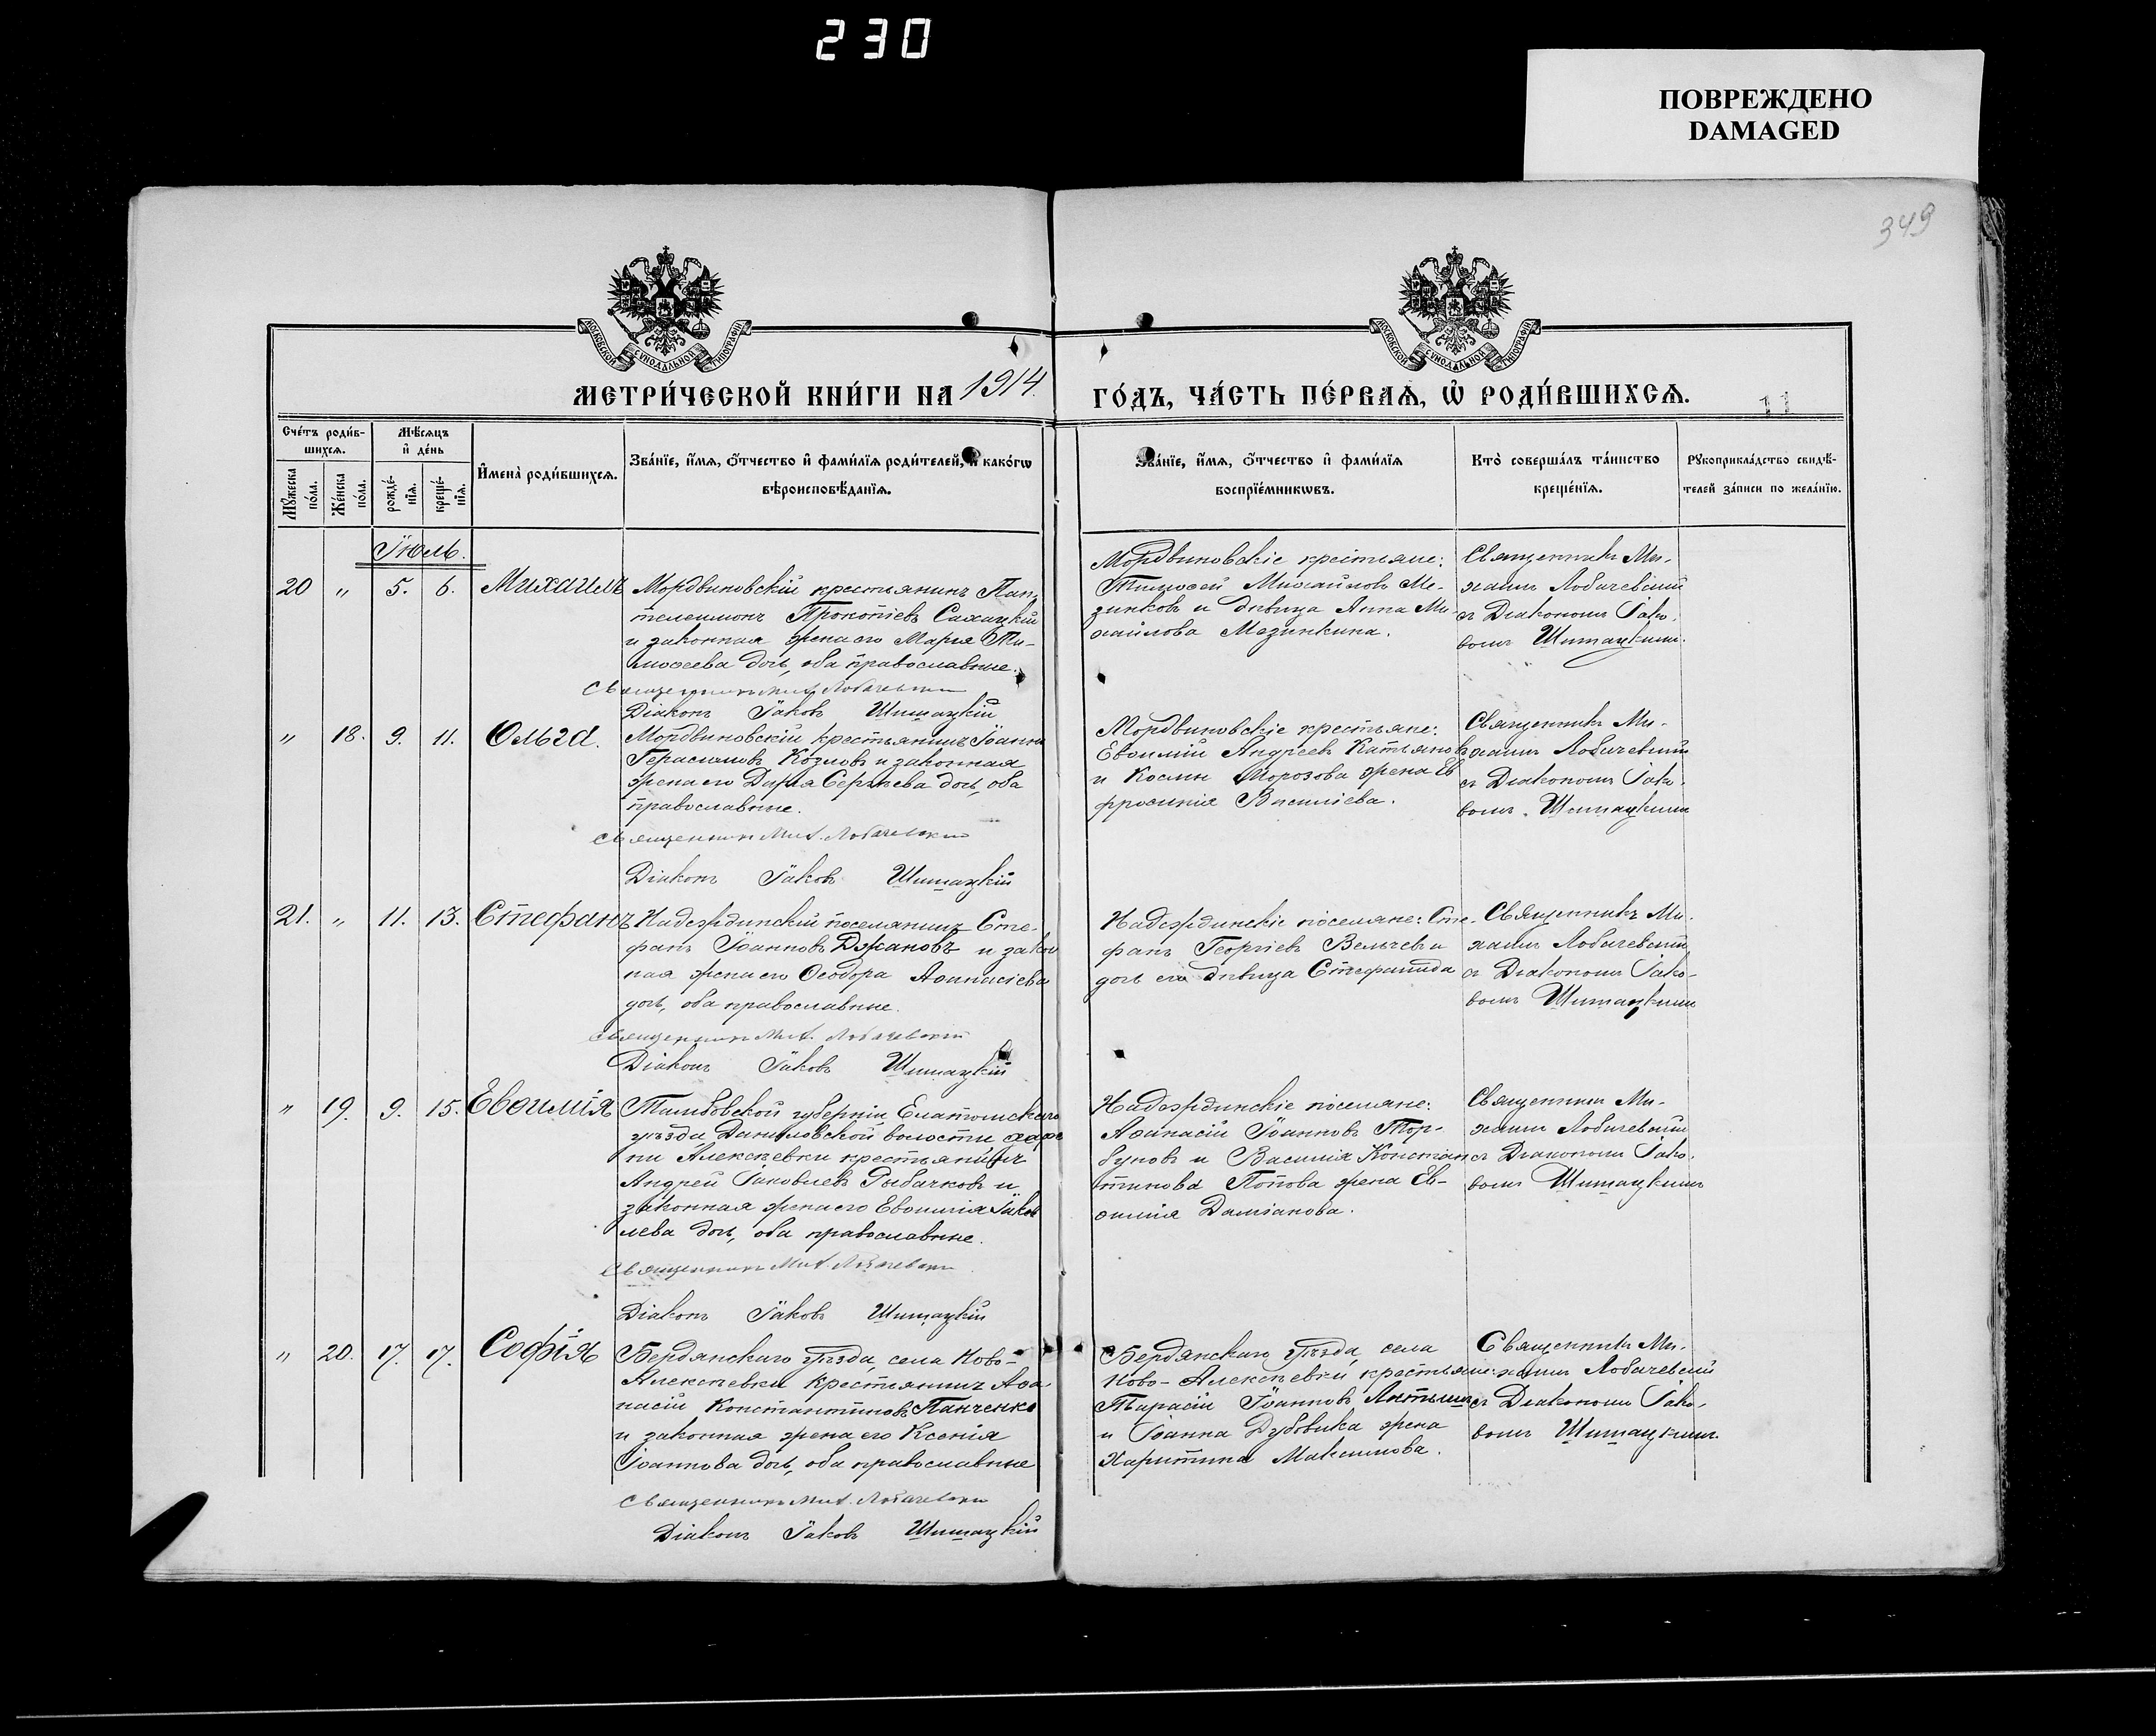 230
ПОВРЕЖДЕНО
DAMAGED
349
МОСКОВСКОЙ СѴНОДАЛЬНОЙ ТИПОГРАФІИ
МОСКОВСКОЙ СѴНОДАЛЬНОЙ ТИПОГРАФІИ
МЕТРИ́ЧЕСКОЙ КНИ́ГИ НА 1914.
ГО́ДЪ, ЧА́СТЬ ПЕ́РВАѦ, Ѡ҆ РОДИ́ВШИХСѦ.
11
Сче́тъ роди́в-
шихсѧ.
Мꙋ́жеска по́ла.
Же́нска по́ла.
Мѣ́сѧцъ
и҆ де́нь
рожде́-
нїѧ.
креще́-
нїѧ.
И҆мена̀ роди́вшихсѧ.
Зва́нїе, и҆́мѧ, ѻ҆́тчество и҆ фами́лїѧ роди́телей, и҆ како́гѡ
вѣроисповѣ́данїѧ.
Зва́нїе, и҆́мѧ, ѻ҆́тчество и҆ фами́лїѧ
воспрїе́мникѡвъ.
Кто̀ соверша́лъ та́инство
креще́нїѧ.
Рꙋкоприкла́дство свидѣ́-
телей за́писи по жела́нїю.
Іюль.
20 „ 5. 6. Михаилъ
Мордвиновскій крестьянинъ Пан-
телеимонъ Прокопіевъ
и законная жена его Марія Ти-
моѳеева дочь, оба православные.
Священникъ Мих. Лобачевскій
Діаконъ Іаковъ Шишацкій
Мордвиновскіе крестьяне:
Тимоѳей Михайловъ Ме-
зинковъ и дѣвица Анна Ми-
хайлова Мезинкина.
Священникъ Ми-
хаилъ Лобачевскій
съ Діакономъ Іако-
вомъ Шишацкимъ.
„ 18. 9. 11. Ольга.
Мордвиновскій крестьянинъ Іоаннъ
Герасимовъ Козловъ и законная
жена его Дарія Сергѣева дочь, оба
православные.
Священникъ Мих. Лобачевскій
Діаконъ Іаковъ Шишацкій
Мордвиновскіе крестьяне:
Евѳимій Андреевъ Катьяновъ
и Космы Морозова жена Ев
фросинія Василіева.
Священникъ Ми-
хаилъ Лобачевскій
съ Діакономъ Іако-
вомъ Шишацкимъ
21. „ 11. 13. Стефанъ
Надеждинскій поселянинъ Сте-
фанъ Іоанновъ Джановъ и закон
ная жена его Ѳеодора Аѳанасіева
дочь, оба православные.
Священникъ Мих. Лобачевскій
Діаконъ Іаковъ Шишацкій
Надеждинскіе поселяне: Сте-
фанъ Георгіевъ Вельчевъ и
дочь его дѣвица Стефанида
Священникъ Ми-
хаилъ Лобачевскій
съ Діакономъ Іако-
вомъ Шишацкимъ
„ 19. 9. 15. Евѳимія
Тамбовской губерніи Елатомскаго
уѣзда Даниловской волости
Алексѣевки крестьянинъ
Андрей Іаковлевъ Рыбачковъ и
законная жена его Евѳимія Іаков
лева дочь, оба православные.
Священникъ Мих. Лобачевскій
Діаконъ Іаковъ Шишацкій
Надеждинскіе поселяне:
Аѳанасій Іоанновъ Тор-
буновъ и Василія Констан
тинова Попова жена Ев-
ѳимія Даміанова.
Священникъ Ми-
хаилъ Лобачевскій
съ Діакономъ Іако-
вомъ Шишацкимъ
„ 20. 17. 17. Софія
Бердянскаго уѣзда, села Ново-
Алексѣевки крестьянинъ Аѳа-
насій Константиновъ Панченко
и законная жена его Ксенія
Іоаннова дочь, оба православные
Священникъ Мих. Лобачевскій
Діаконъ Іаковъ Шишацкій
Бердянскаго уѣзда, села
Ново-Алексѣевки крестьяне:
Тарасій Іоанновъ
и Іоанна Дубовика жена
Харитина Максимова.
Священникъ Ми-
хаилъ Лобачевскій
съ Діакономъ Іако-
вомъ Шишацкимъ.